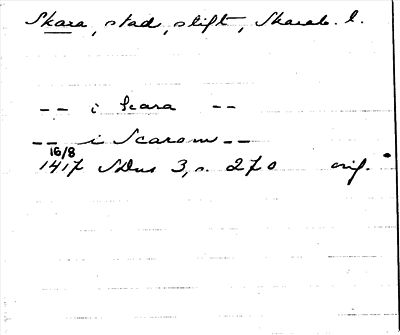 Skara, stad, stift, Skarab. l.
-- i Scara --
-- i Scarom --
16/8
1417 SDns 3, s. 270 orig.